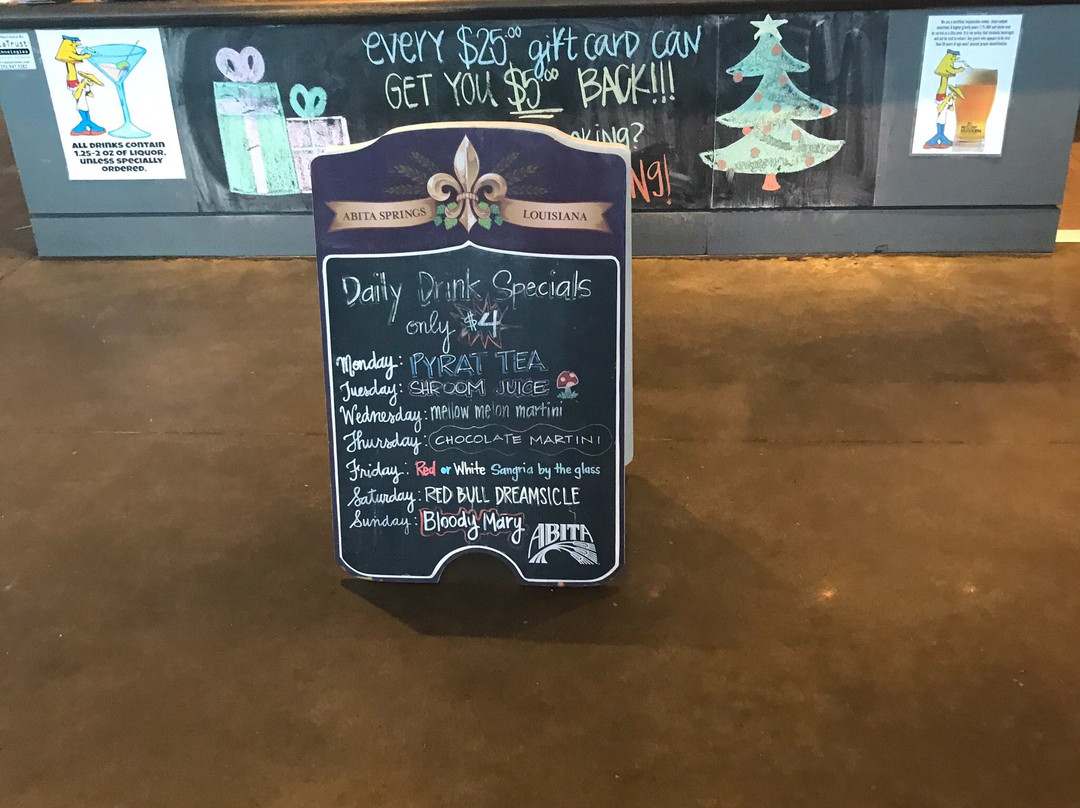 every $25.00 gift card can
GET YOU $5.00 BACK!!!
ALL DRINKS CONTAIN
1.25-2 OZ OF LIQUOR,
UNLESS SPECIALLY
ORDERED.
ABITA SPRINGS LOUISIANA
Daily Drink Specials
only $4
Monday: PYRAT TEA
Tuesday: SHROOM JUICE
Wednesday: mellow melon martini
Thursday: CHOCOLATE MARTINI
Friday: Red or White Sangria by the glass
Saturday: RED BULL DREAMSICLE
Sunday: Bloody Mary
ABITA